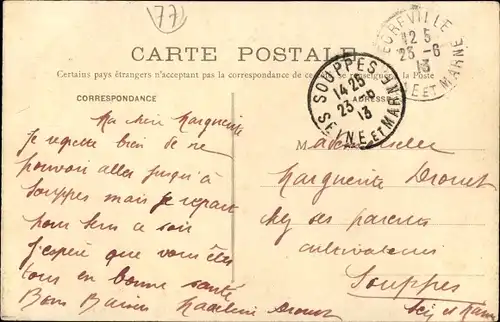 77
CARTE POSTALE
Certains pays étrangers n'acceptant pas la correspondance de ce se renseigner à la Poste
CORRESPONDANCE
ADRESSE
EGREVILLE
12 5
23 - 6
13
SEINE ET MARNE
SOUPPES
14 25
23 - 6
13
SEINE ET MARNE
Ma chère Marguerite
Je regrette bien de ne
pouvoir aller jusqu'à
Souppes mais je repart
ce soir
j'espère que vous êtes
tous en bonne santé
Bons Baisers Madeleine Drouet
Mademoiselle
Marguerite Drouet
chez ses parents
cultivateurs
Souppes
Sei et Marne